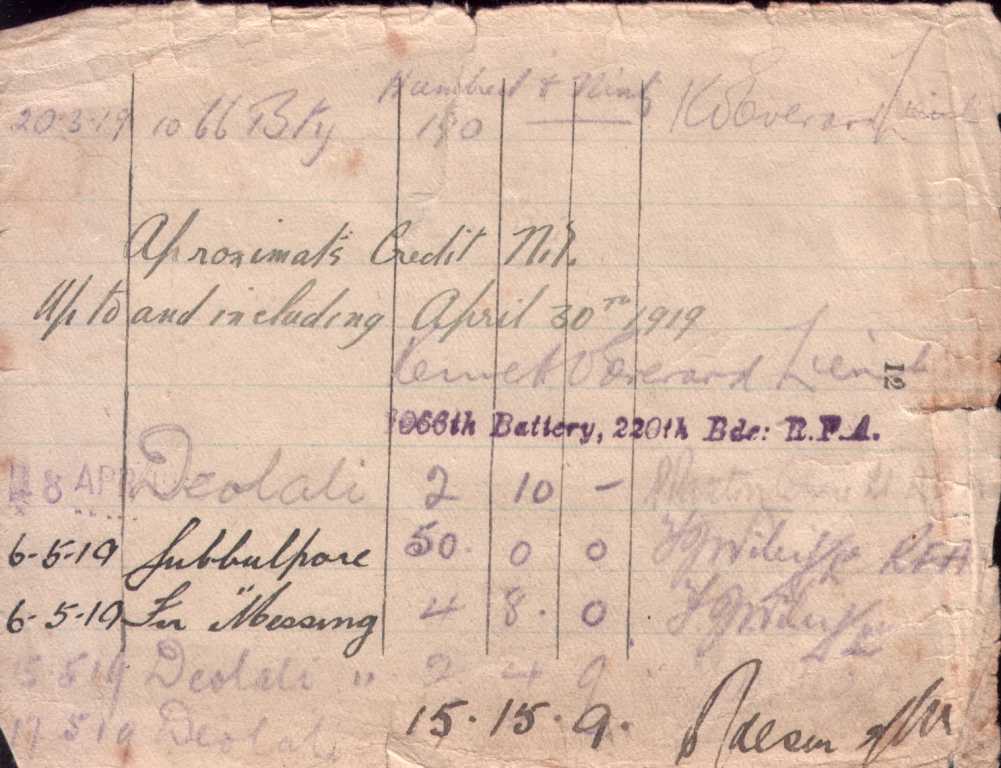 Hundred & Nine
20-3-19 10 66 Bty 180 K Everard Lieut
Aproximate Credit Nil.
Up to and including April 30TH 1919
Everard Lieut
12
1066th Battery, 220th Bde: R.F.A.
APR Deolali 2 10 -
6-5-19 Jubbulpore 50. 0 0 RFA
6-5-19 For "Messing 4 8. 0
15 5 19 Deolali " 2 4 9
17 5 19 Deolali 15. 15. 9.